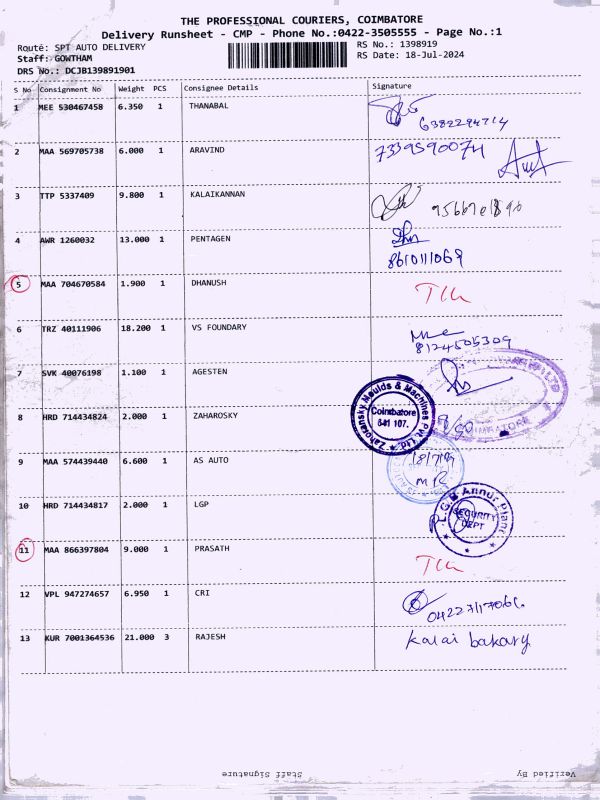 THE PROFESSIONAL COURIERS, COIMBATORE
Delivery Runsheet - CMP - Phone No.:0422-3505555 - Page No.:1
Route: SPT AUTO DELIVERY
RS No.: 1398919
Staff: GOWTHAM
RS Date: 18-Jul-2024
DRS No.: DCJB139891901
S No Consignment No Weight PCS Consignee Details Signature
1 MEE 530467458 6.350 1 THANABAL
2 MAA 569705738 6.000 1 ARAVIND 7339590074
3 TTP 5337409 9.800 1 KALAIKANNAN
4 AWR 1260032 13.000 1 PENTAGEN
8610111069
5 MAA 704670584 1.900 1 DHANUSH
6 TRZ 40111906 18.200 1 VS FOUNDARY
8124505309
7 SVK 40076198 1.100 1 AGESTEN
COIMBATORE
8 HRD 714434824 2.000 1 ZAHAROSKY
Zahoransky Moulds & Machines Pvt. Ltd.
Coimbatore
641 107.
9 MAA 574439440 6.600 1 AS AUTO
MR
10 HRD 714434817 2.000 1 LGP
L.G.B Annur Plant
SECURITY
DEPT
11 MAA 866397804 9.000 1 PRASATH
12 VPL 947274657 6.950 1 CRI
13 KUR 7001364536 21.000 3 RAJESH Kalai bakary
Staff Signature
Verified By